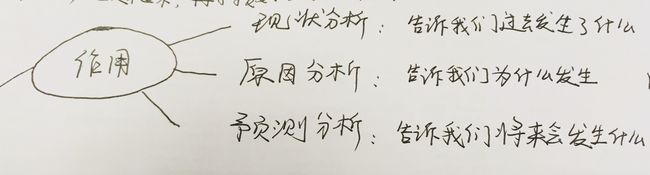 现状分析：告诉我们过去发生了什么
作用
原因分析：告诉我们为什么发生
预测分析：告诉我们将来会发生什么